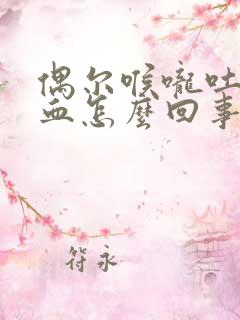 偶尔喉嚨吐
血怎麽回事
符永